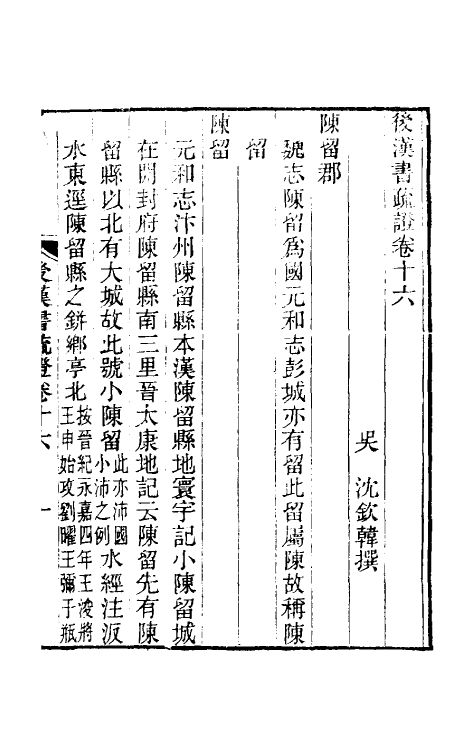 後漢書疏證卷十六
吳　沈欽韓撰
陳留郡
魏志陳留爲國元和志彭城亦有留此留屬陳故稱陳
留
陳留
元和志汴州陳留縣本漢陳留縣地寰宇記小陳留城
在開封府陳留縣南三里晉太康地記云陳留先有陳
留縣以北有大城故此號小陳留此亦沛國小沛之例水經注汳
水東逕陳留縣之鉼鄉亭北按晉紀永嘉四年王浚將王申始攻劉曜王彌于瓶
後漢書疏證卷十六　一